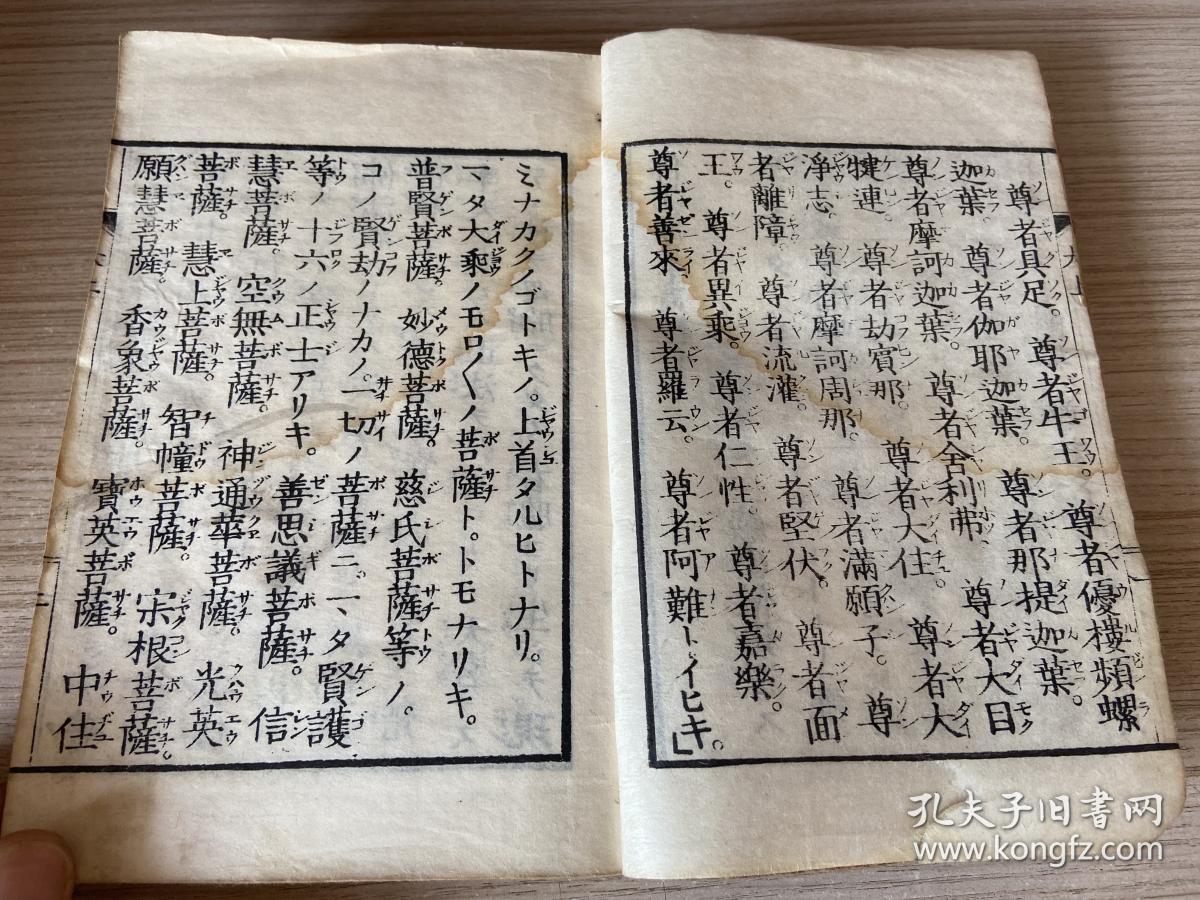 尊者具足。　尊者牛王。　尊者優樓頻螺
迦葉。　尊者伽耶迦葉。　尊者那提迦葉。
尊者摩訶迦葉。　尊者舍利弗。　尊者大目
犍連。　尊者劫賓那。　尊者大住。　尊者大
淨志。　尊者摩訶周那。　尊者滿願子。　尊
者離障　尊者流灌。　尊者堅伏。　尊者面
王。　尊者異乘。　尊者仁性。　尊者嘉樂。
尊者善來。　尊者羅云。　尊者阿難ト。イヒキ。」
ミナカクノゴトキノ。上首タルヒトナリ。
マタ大乘ノモロ〱ノ菩薩ト。トモナリキ。
普賢菩薩。　妙德菩薩。　慈氏菩薩等ノ。
コノ賢劫ノナカノ。一切ノ菩薩ニ。マタ賢護
等ノ十六ノ正士アリキ。　善思議菩薩。　信
慧菩薩。　空無菩薩。　神通華菩薩。　光英
菩薩。　慧上菩薩。　智幢菩薩。　寂根菩薩。
願慧菩薩。　香象菩薩。　寶英菩薩。　中住
孔夫子旧书网
www.kongfz.com